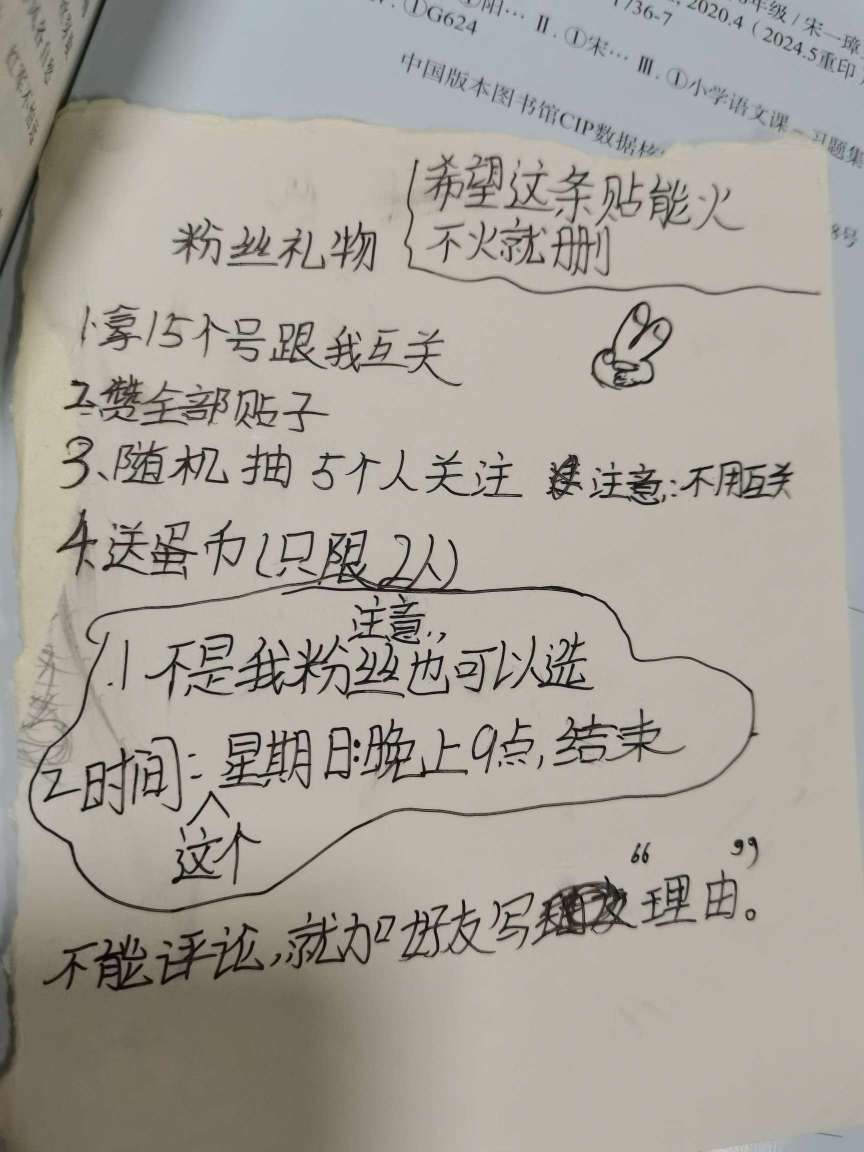 ①阳… Ⅱ.①宋… Ⅲ.①小学语文课－习题集
①G624
年级/宋一璋
2020.4（2024.5重印
/36-7
中国版本图书馆CIP数据核
8号
希望这条贴能火
不火就删
粉丝礼物
1.拿15个号跟我互关
2.赞全部贴子
3、随机抽5个人关注 注意:不用互关
4.送蛋币(只限2人)
注意:
.1不是我粉丝也可以选
2时间:这个星期日:晚上9点,结束
不能评论,就加好友写“理由”。